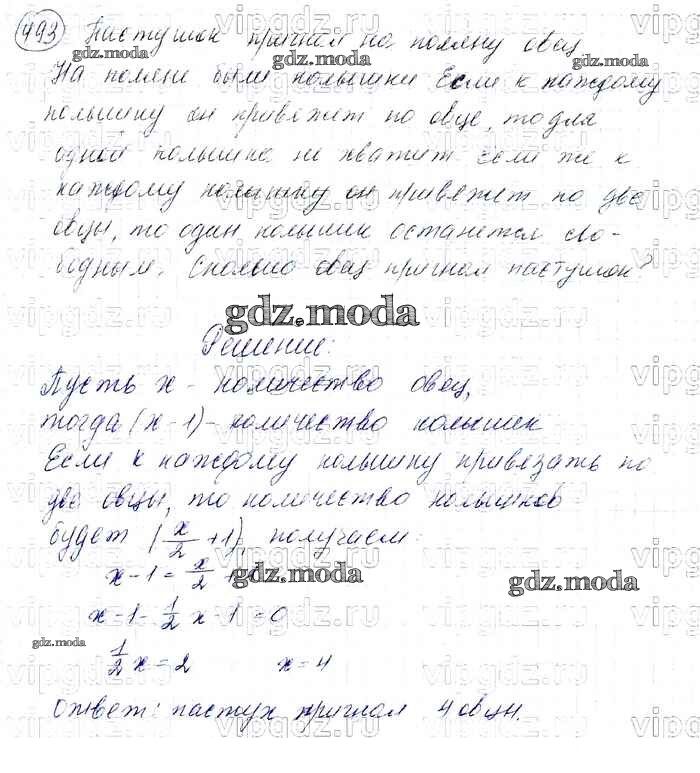 493 Пастушок пригнал на поляну овец
На поляне были колышки Если к каждому
колышку он привяжет по овце, то для
одной колышка не хватит если же к
каждому колышку он привяжет по две
овцы, то один колышек останется сво-
бодным. Сколько овец пригнал пастушок?
gdz.moda
Решение:
Пусть x - количество овец,
тогда (x-1) - количество колышек
Если к каждому колышку привязать по
две овцы, то количество колышков
будет (x/2 + 1), получаем:
x - 1 = x/2 + 1
gdz.moda gdz.moda
x - 1 - 1/2 x - 1 = 0
gdz.moda
1/2 x = 2 x = 4
Ответ: пастух пригнал 4 овцы.
vipgdz.ru